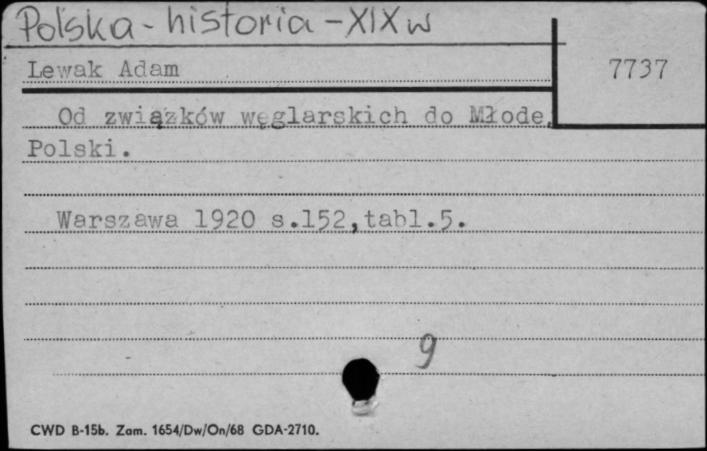 Polska - historia - XIX w
Lewak Adam
7737
Od związków węglarskich do Młode
Polski.
Warszawa 1920 s.152,tabl.5.
9
CWD B-15b. Zam. 1654/Dw/On/68 GDA-2710.